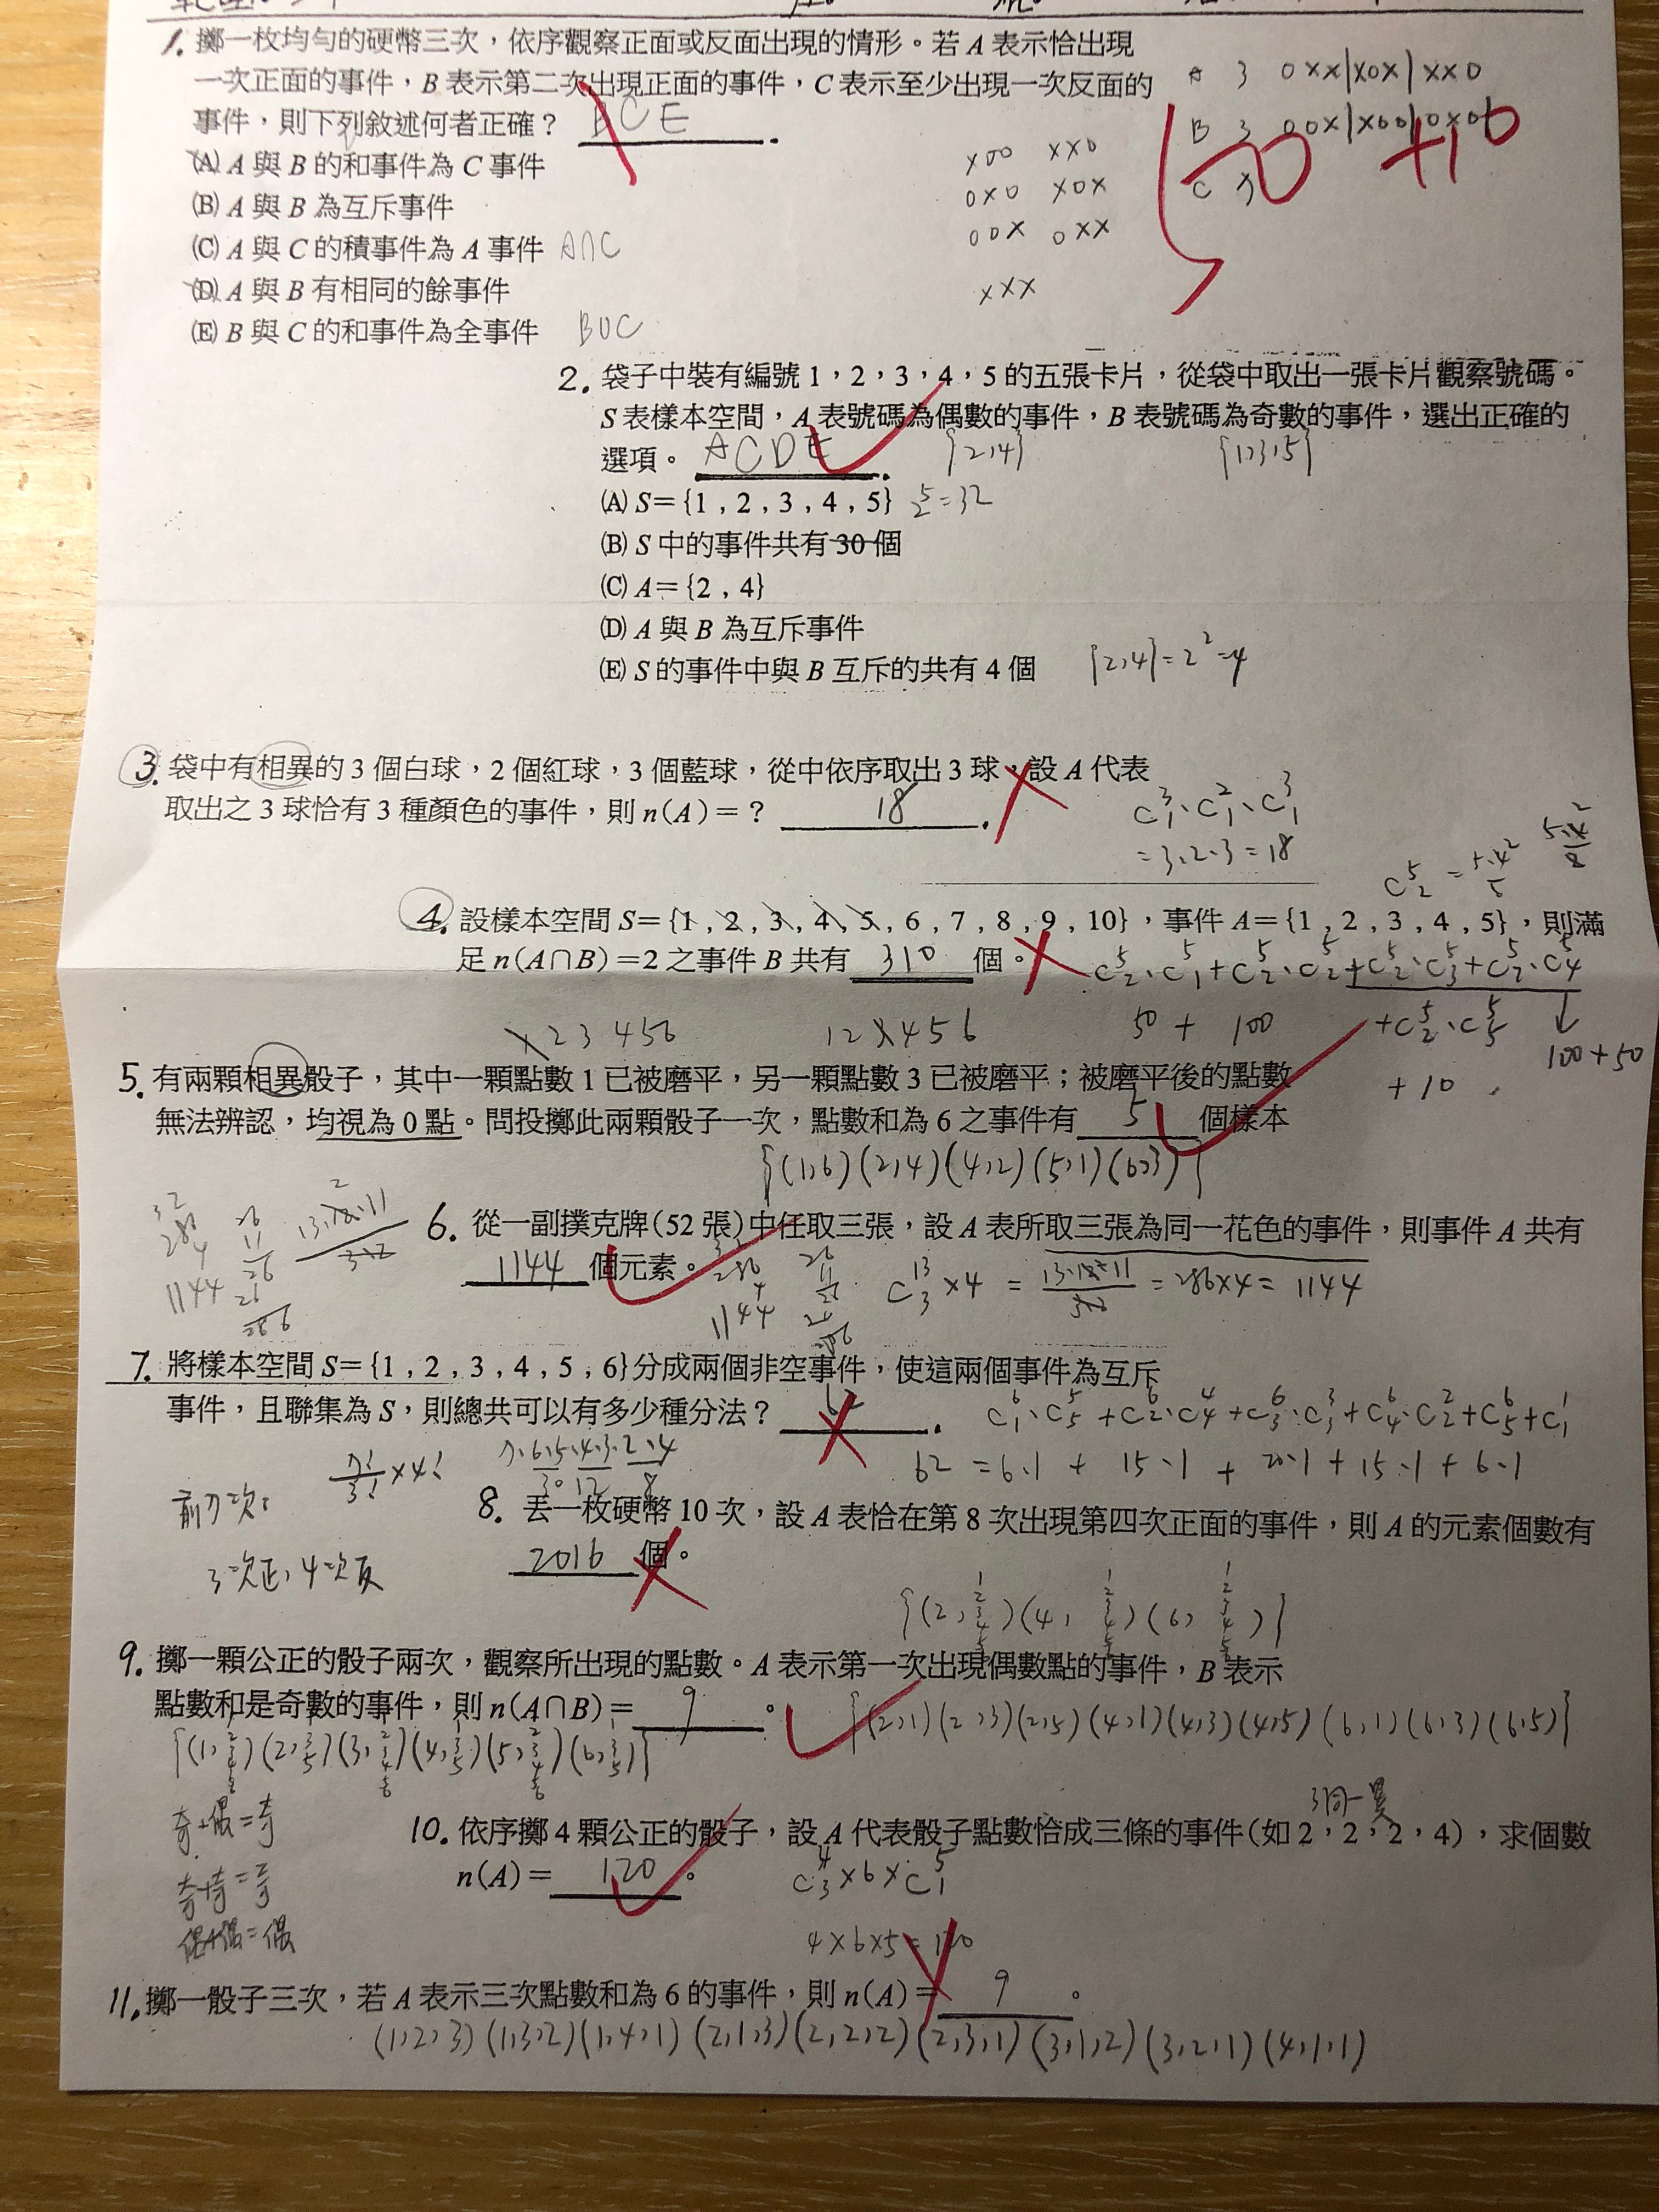 1. 擲一枚均勻的硬幣三次，依序觀察正面或反面出現的情形。若 A 表示恰出現
一次正面的事件，B 表示第二次出現正面的事件，C 表示至少出現一次反面的
事件，則下列敘述何者正確？ BCE .
(A) A 與 B 的和事件為 C 事件
(B) A 與 B 為互斥事件
(C) A 與 C 的積事件為 A 事件 A∩C
(D) A 與 B 有相同的餘事件
(E) B 與 C 的和事件為全事件 B∪C
A 3 0xx|x0x|xx0
B 3 00x|x00|0x0
C 7
50 +10
x00 xx0
0x0 x0x
00x 0xx
xxx
2. 袋子中裝有編號 1，2，3，4，5 的五張卡片，從袋中取出一張卡片觀察號碼。
S 表樣本空間，A 表號碼為偶數的事件，B 表號碼為奇數的事件，選出正確的
選項。 ACDE . {2,4} {1,3,5}
(A) S={1，2，3，4，5} 2^5=32
(B) S 中的事件共有 30 個
(C) A={2，4}
(D) A 與 B 為互斥事件
(E) S 的事件中與 B 互斥的共有 4 個 {2,4}=2²=4
3. 袋中有相異的 3 個白球，2 個紅球，3 個藍球，從中依序取出 3 球，設 A 代表
取出之 3 球恰有 3 種顏色的事件，則 n(A)=？ 18 .
C³₁·C²₁·C³₁
=3·2·3=18
4. 設樣本空間 S={1，2，3，4，5，6，7，8，9，10}，事件 A={1，2，3，4，5}，則滿
足 n(A∩B)=2 之事件 B 共有 310 個。
C⁵₂·C⁵₁+C⁵₂·C⁵₂+C⁵₂·C⁵₃+C⁵₂·C⁵₄
50 + 100 +C⁵₂·C⁵₅ ↓
+10 100+50
x23456 12x456
5. 有兩顆相異骰子，其中一顆點數 1 已被磨平，另一顆點數 3 已被磨平；被磨平後的點數
無法辨認，均視為 0 點。問投擲此兩顆骰子一次，點數和為 6 之事件有 5 個樣本
{(1,6)(2,4)(4,2)(5,1)(6,3)}
6. 從一副撲克牌(52 張)中任取三張，設 A 表所取三張為同一花色的事件，則事件 A 共有
1144 個元素。
C¹³₃×4 = 13·12·11/3·2 = 286×4 = 1144
7. 將樣本空間 S={1，2，3，4，5，6}分成兩個非空事件，使這兩個事件為互斥
事件，且聯集為 S，則總共可以有多少種分法？ 62 .
C⁶₁·C⁵₅+C⁶₂·C⁴₄+C⁶₃·C³₃+C⁶₄·C²₂+C⁶₅+C¹₁
62 = 6·1 + 15·1 + 20·1 + 15·1 + 6·1
前7次:
7!/3!×4!
3次正,4次反
8. 丟一枚硬幣 10 次，設 A 表恰在第 8 次出現第四次正面的事件，則 A 的元素個數有
2016 個。
9. 擲一顆公正的骰子兩次，觀察所出現的點數。A 表示第一次出現偶數點的事件，B 表示
點數和是奇數的事件，則 n(A∩B)= 9 。
{(2,1)(2,3)(2,5)(4,1)(4,3)(4,5)(6,1)(6,3)(6,5)}
奇+偶=奇
偶+偶=偶
3同一異
10. 依序擲 4 顆公正的骰子，設 A 代表骰子點數恰成三條的事件(如 2，2，2，4)，求個數
n(A)= 120 。
C⁴₃×6×C⁵₁
4×6×5=120
11. 擲一骰子三次，若 A 表示三次點數和為 6 的事件，則 n(A)= 9 。
(1,2,3)(1,3,2)(1,4,1)(2,1,3)(2,2,2)(2,3,1)(3,1,2)(3,2,1)(4,1,1)